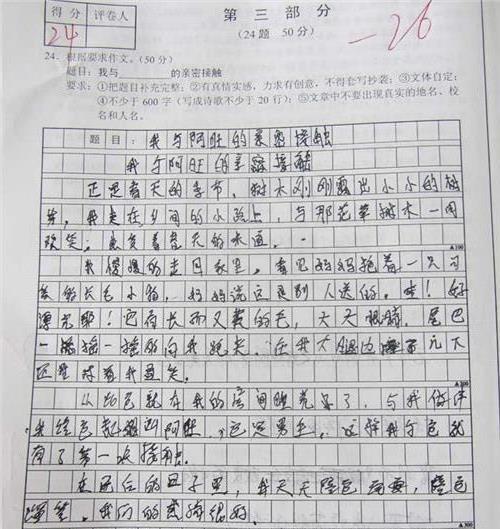 得分 评卷人
24
第三部分
(24题 50分)
-26
24. 根据要求作文。(50分)
题目:我与______的亲密接触
要求:①把题目补充完整;②有真情实感,力求有创意,不得套写抄袭;③文体自定;
④不少于600字(写成诗歌不少于20行);⑤文章中不要出现真实的地名、校
名和人名。
题目:我与阿旺的亲密接触
我与阿旺的亲密接触
正是春天的季节,树木刚刚露出小小的树
芽,我走在乡间的小路上,与那花草树木一同
欢笑,着春天的来。
▲100
我慢慢的走回家里,看见妈妈抱着一只可
爱的长毛小狗,妈妈说这是别人送的。哇!好
漂亮耶!它有长而又黄的毛,大大眼睛,尾巴
一摇摇一摇的向我跑来,在我大腿边了几下
还对着我微笑。
▲200
从此它就在我的房间睡了,与我做伴
我给它起阿旺,它是男生,这样我与它就
有了第一次接触。
在以后的日子里,我天天陪它玩耍,陪它
,我们的感情很好。
▲300